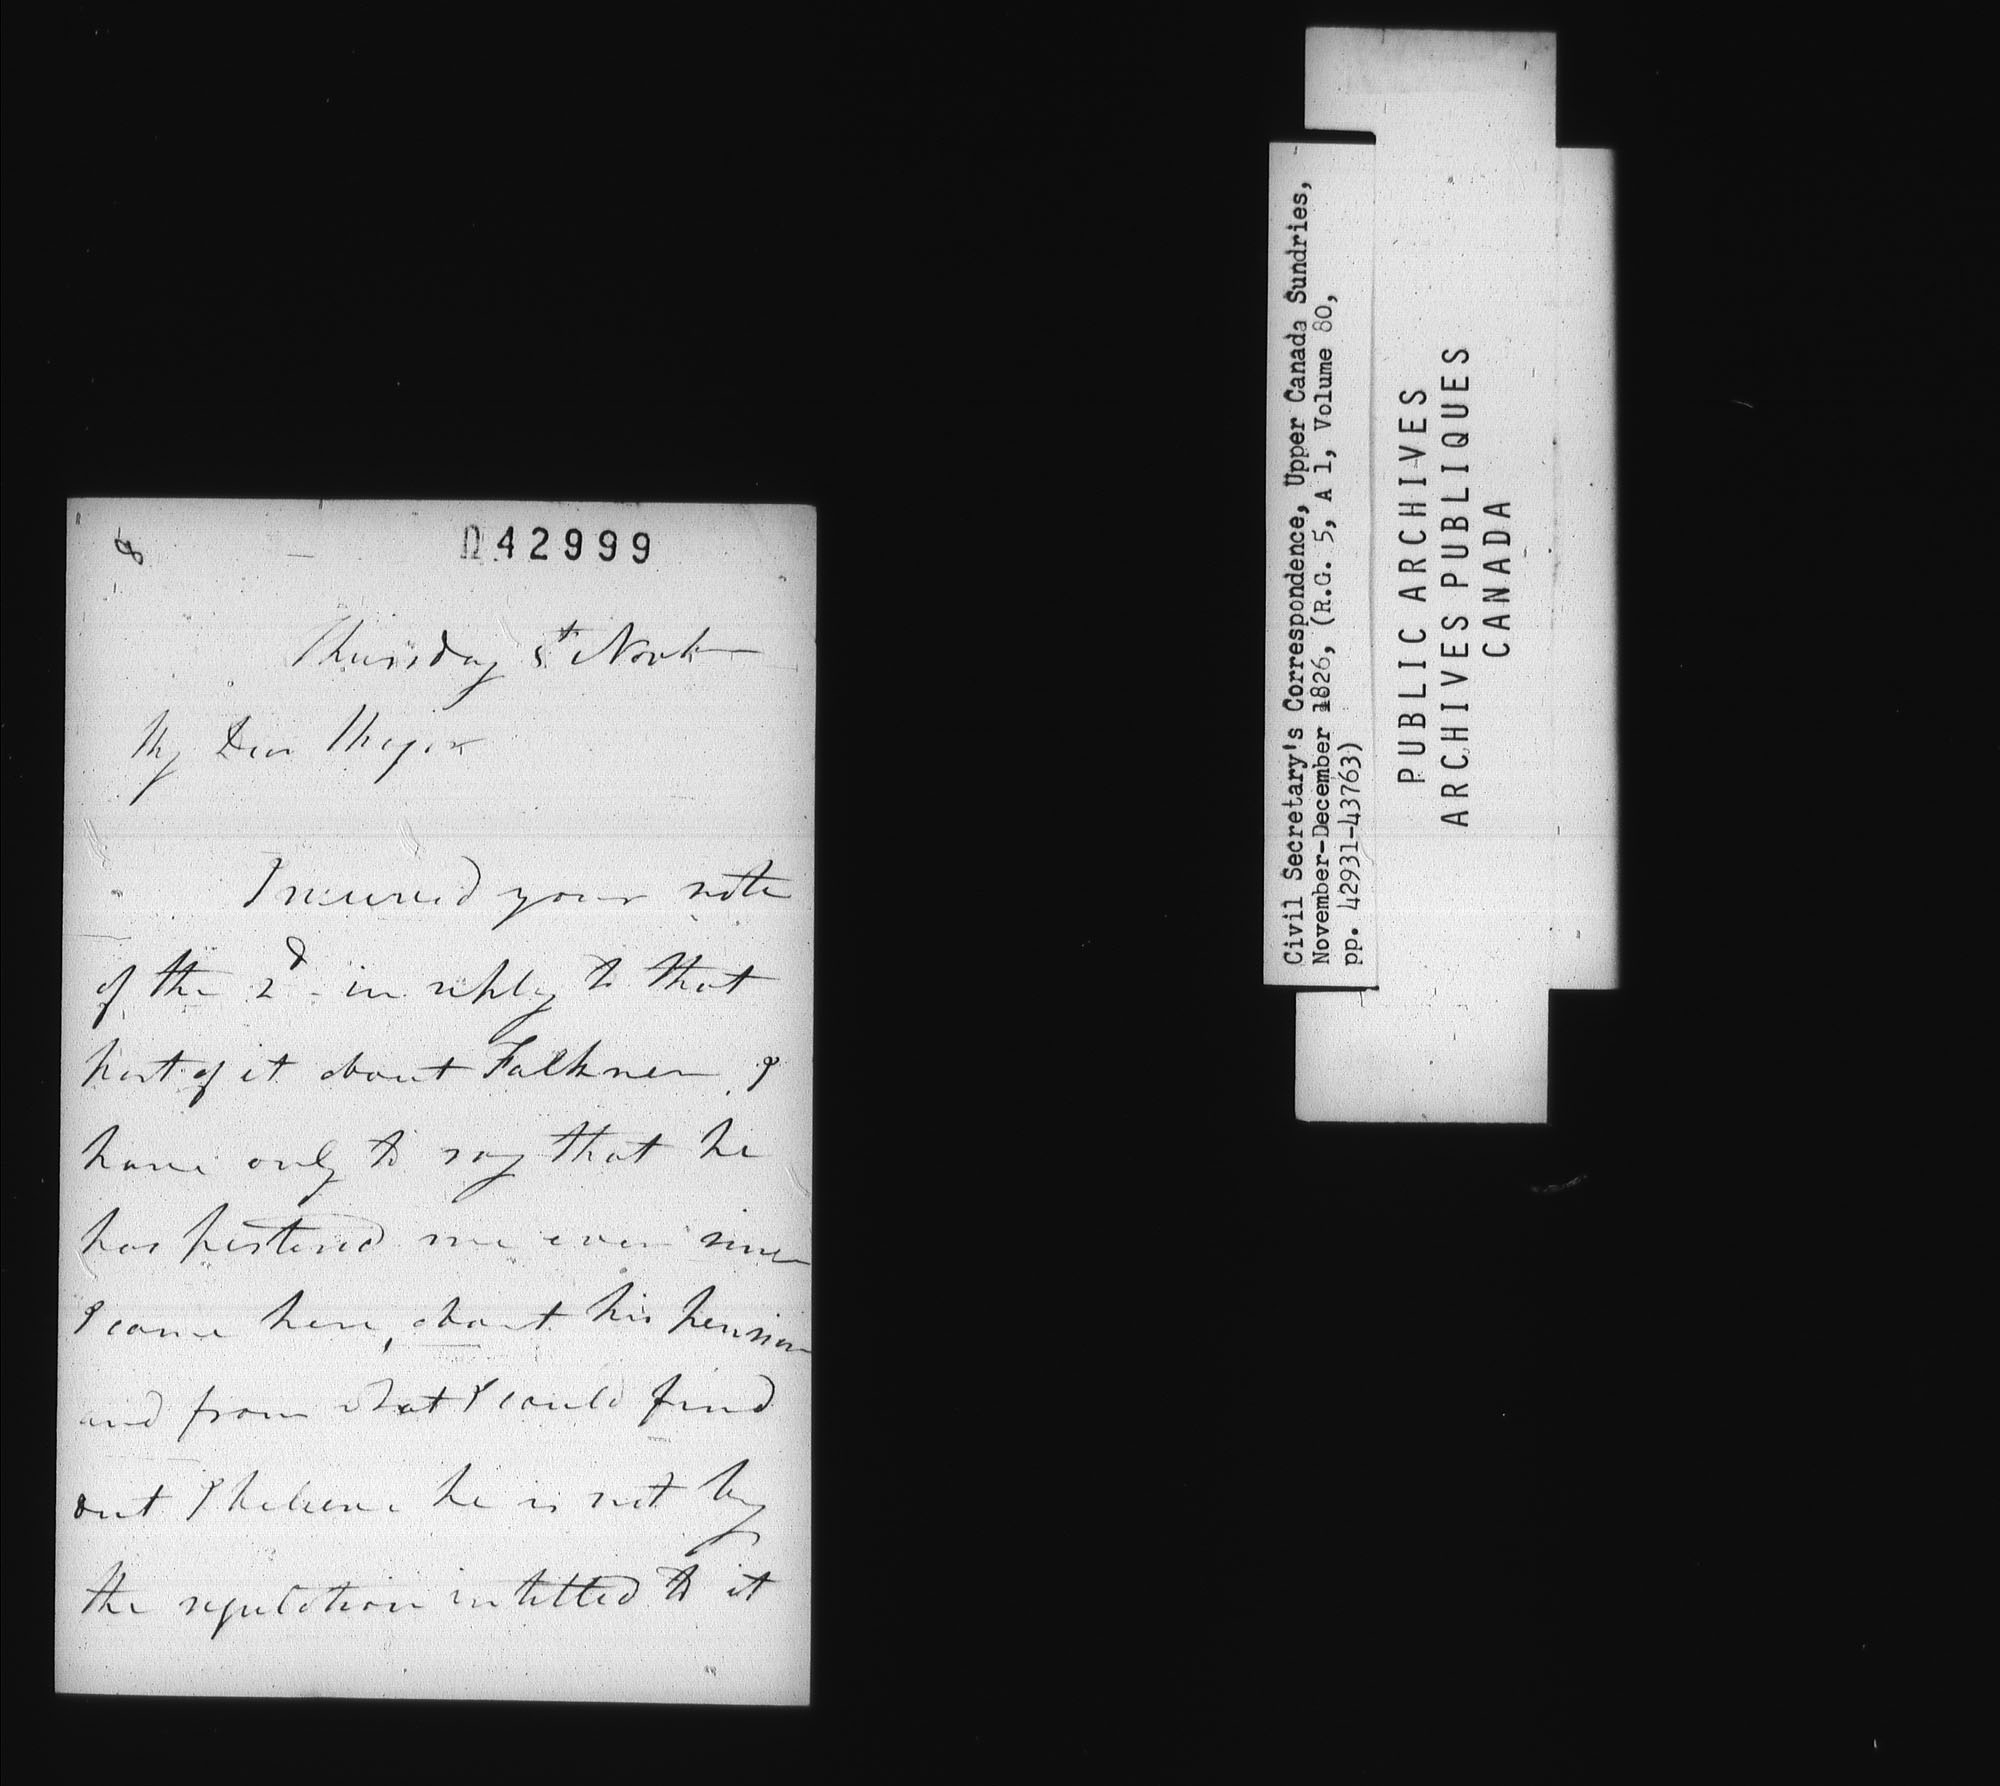 8
042999
Thursday 5th Novr
My Dear Major
I received your note
of the 2d - in reply to that
part of it about Falkner, I
have only to say that he
has pestered me ever since
I came here, about his pension
and from what I could find
out I believe he is not by
the regulation intitled to it
Civil Secretary's Correspondence, Upper Canada Sundries,
November-December 1826, (R.G. 5, A 1, Volume 80,
pp. 42931-43763)
PUBLIC ARCHIVES
ARCHIVES PUBLIQUES
CANADA